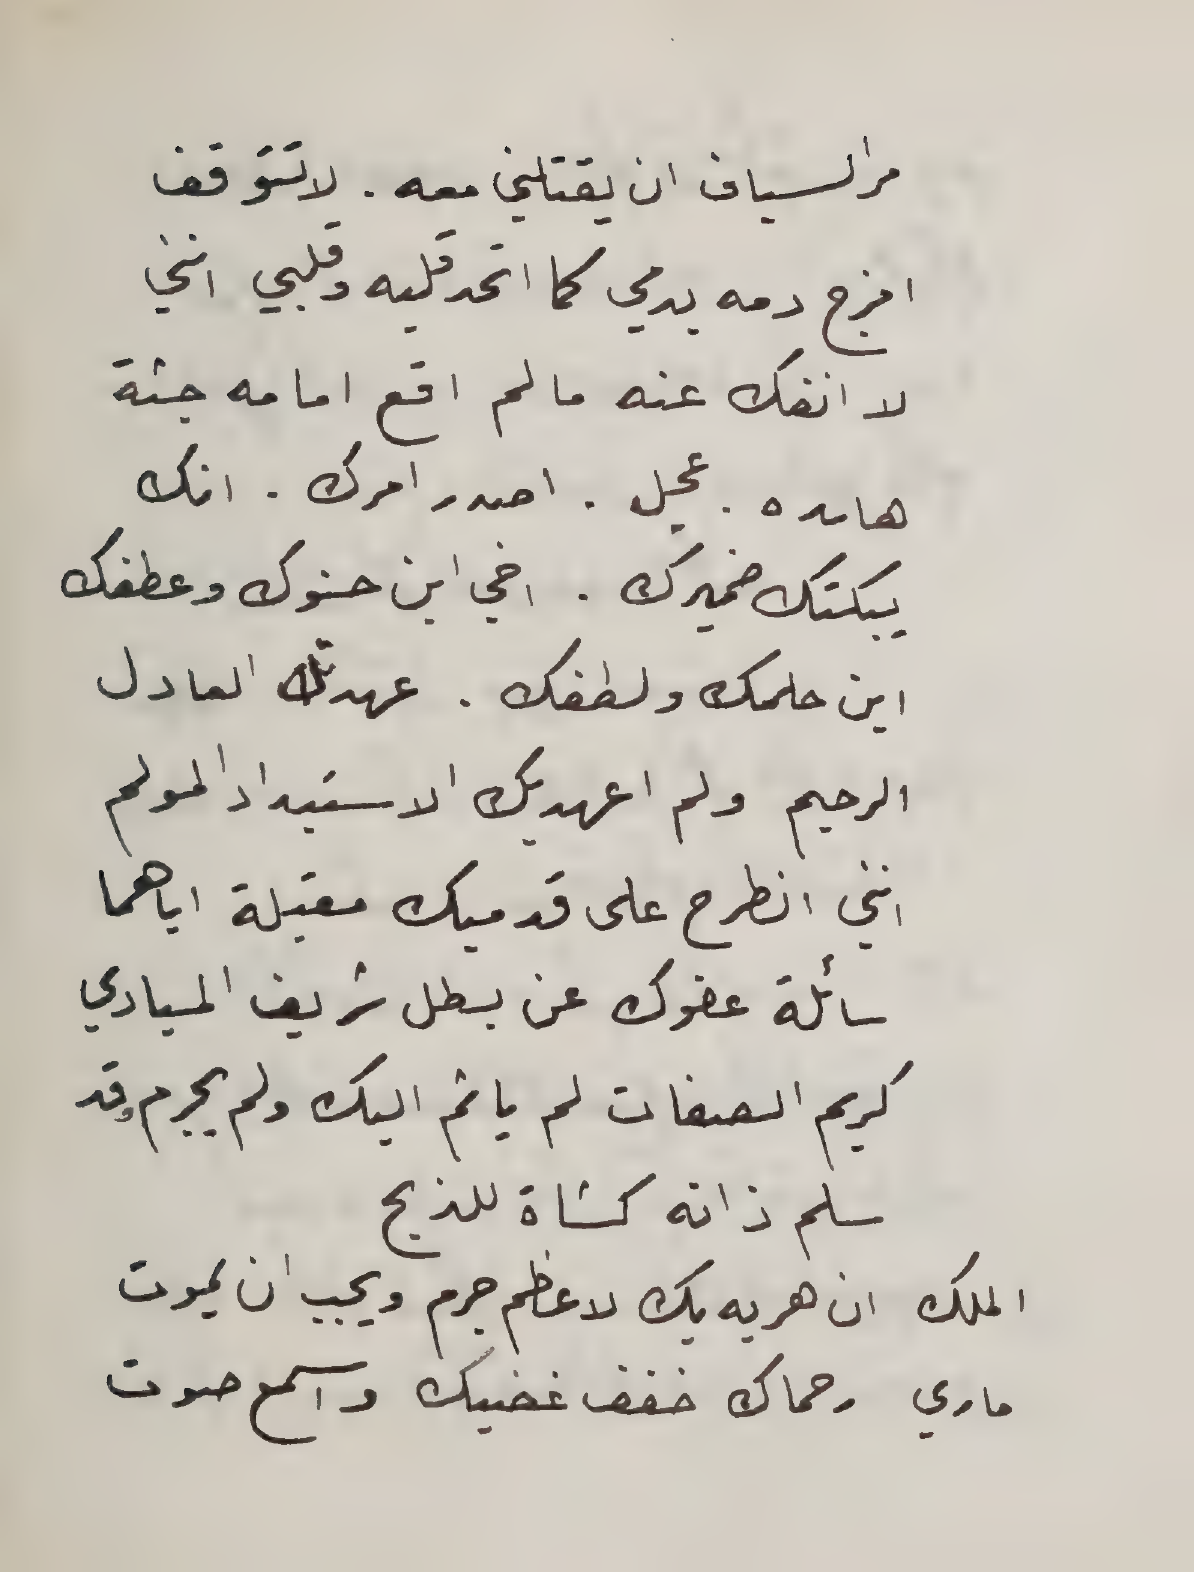 مر السياف ان يقتلني معه . لا تتوقف
امزج دمه بدمي كما اتحد قلبه وقلبي انني
لا انفك عنه ما لم اقع امامه جثة
هامدة . عجل . اصدر امرك . انك
يبكتك ضميرك . اخي اين حنوك وعطفك
اين حلمك ولطفك . عهدتك العادل
الرحيم ولم اعهد بك الاستبداد المولم
انني انطرح على قدميك مقبلة اياهما
سائلة عفوك عن بطل شريف المبادي
كريم الصفات لم ياثم اليك ولم يجرم وقد
سلم ذاته كشاة للذبح
الملك ان هربه بك لاعظم جرم ويجب ان يموت
ماري رحماك خفف غضبك واسمع صوت